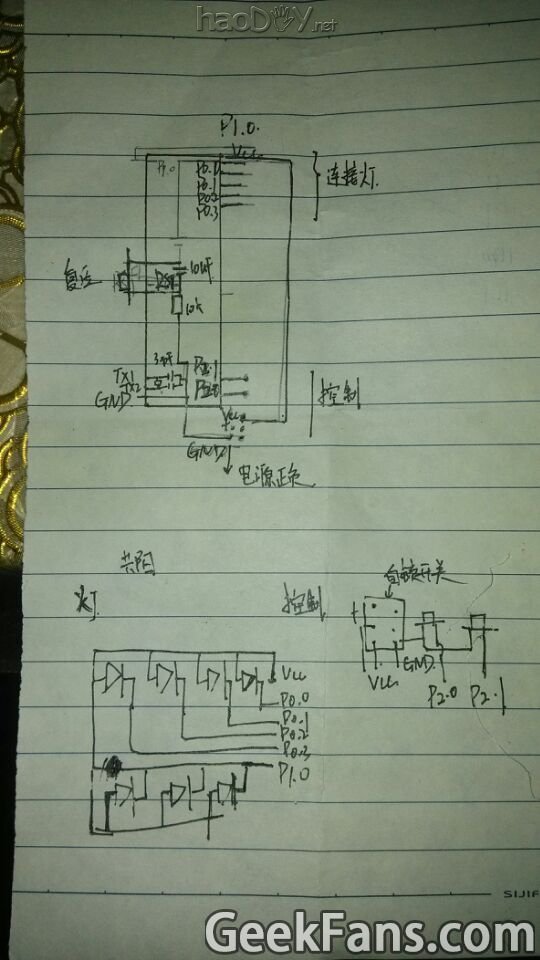 haoDIY.net
P1.0.
Vcc
P1.0
P0.1
P0.2
P0.3
连接灯.
10uF
复位
RST
10k
TX1
TX2
GND
P2.1
P2.0
控制
Vcc
GND
电源正负
共阳
灯
控制
自锁开关
Vcc
P0.0
P0.1
P0.2
P0.3
P1.0
Vcc
GND.
P2.0
P2.1
SIJIF
GeekFans.com